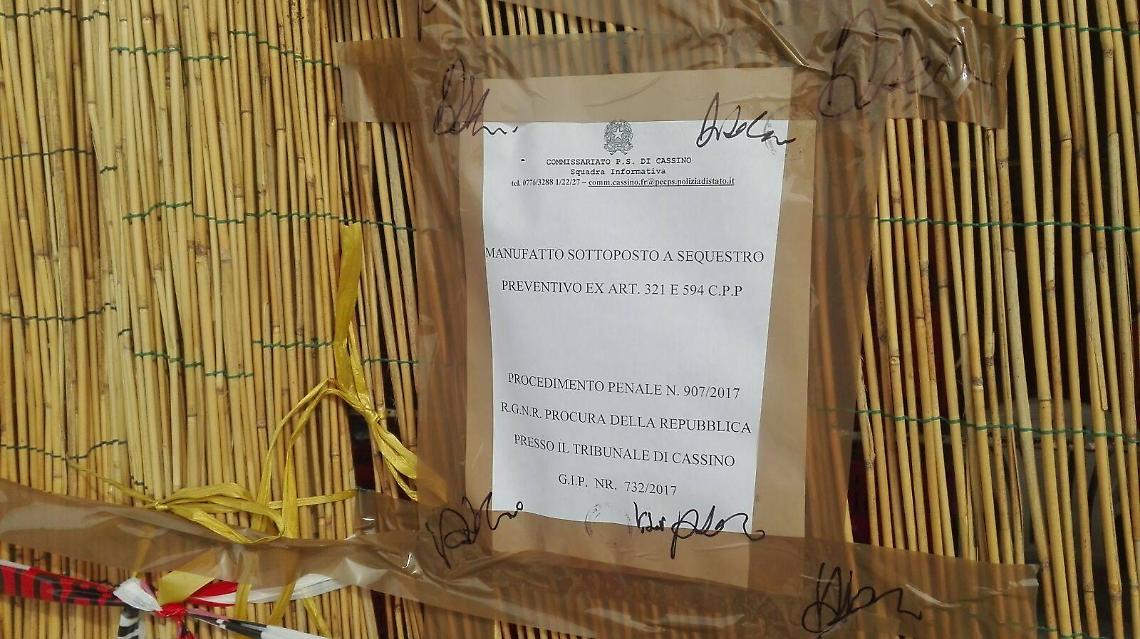 COMMISSARIATO P.S. DI CASSINO
Squadra Informativa
tel. 0776/3288 1/22/27 – comm.cassino.fr@pecps.poliziadistato.it
MANUFATTO SOTTOPOSTO A SEQUESTRO
PREVENTIVO EX ART. 321 E 594 C.P.P
PROCEDIMENTO PENALE N. 907/2017
R.G.N.R. PROCURA DELLA REPUBBLICA
PRESSO IL TRIBUNALE DI CASSINO
G.I.P. NR. 732/2017